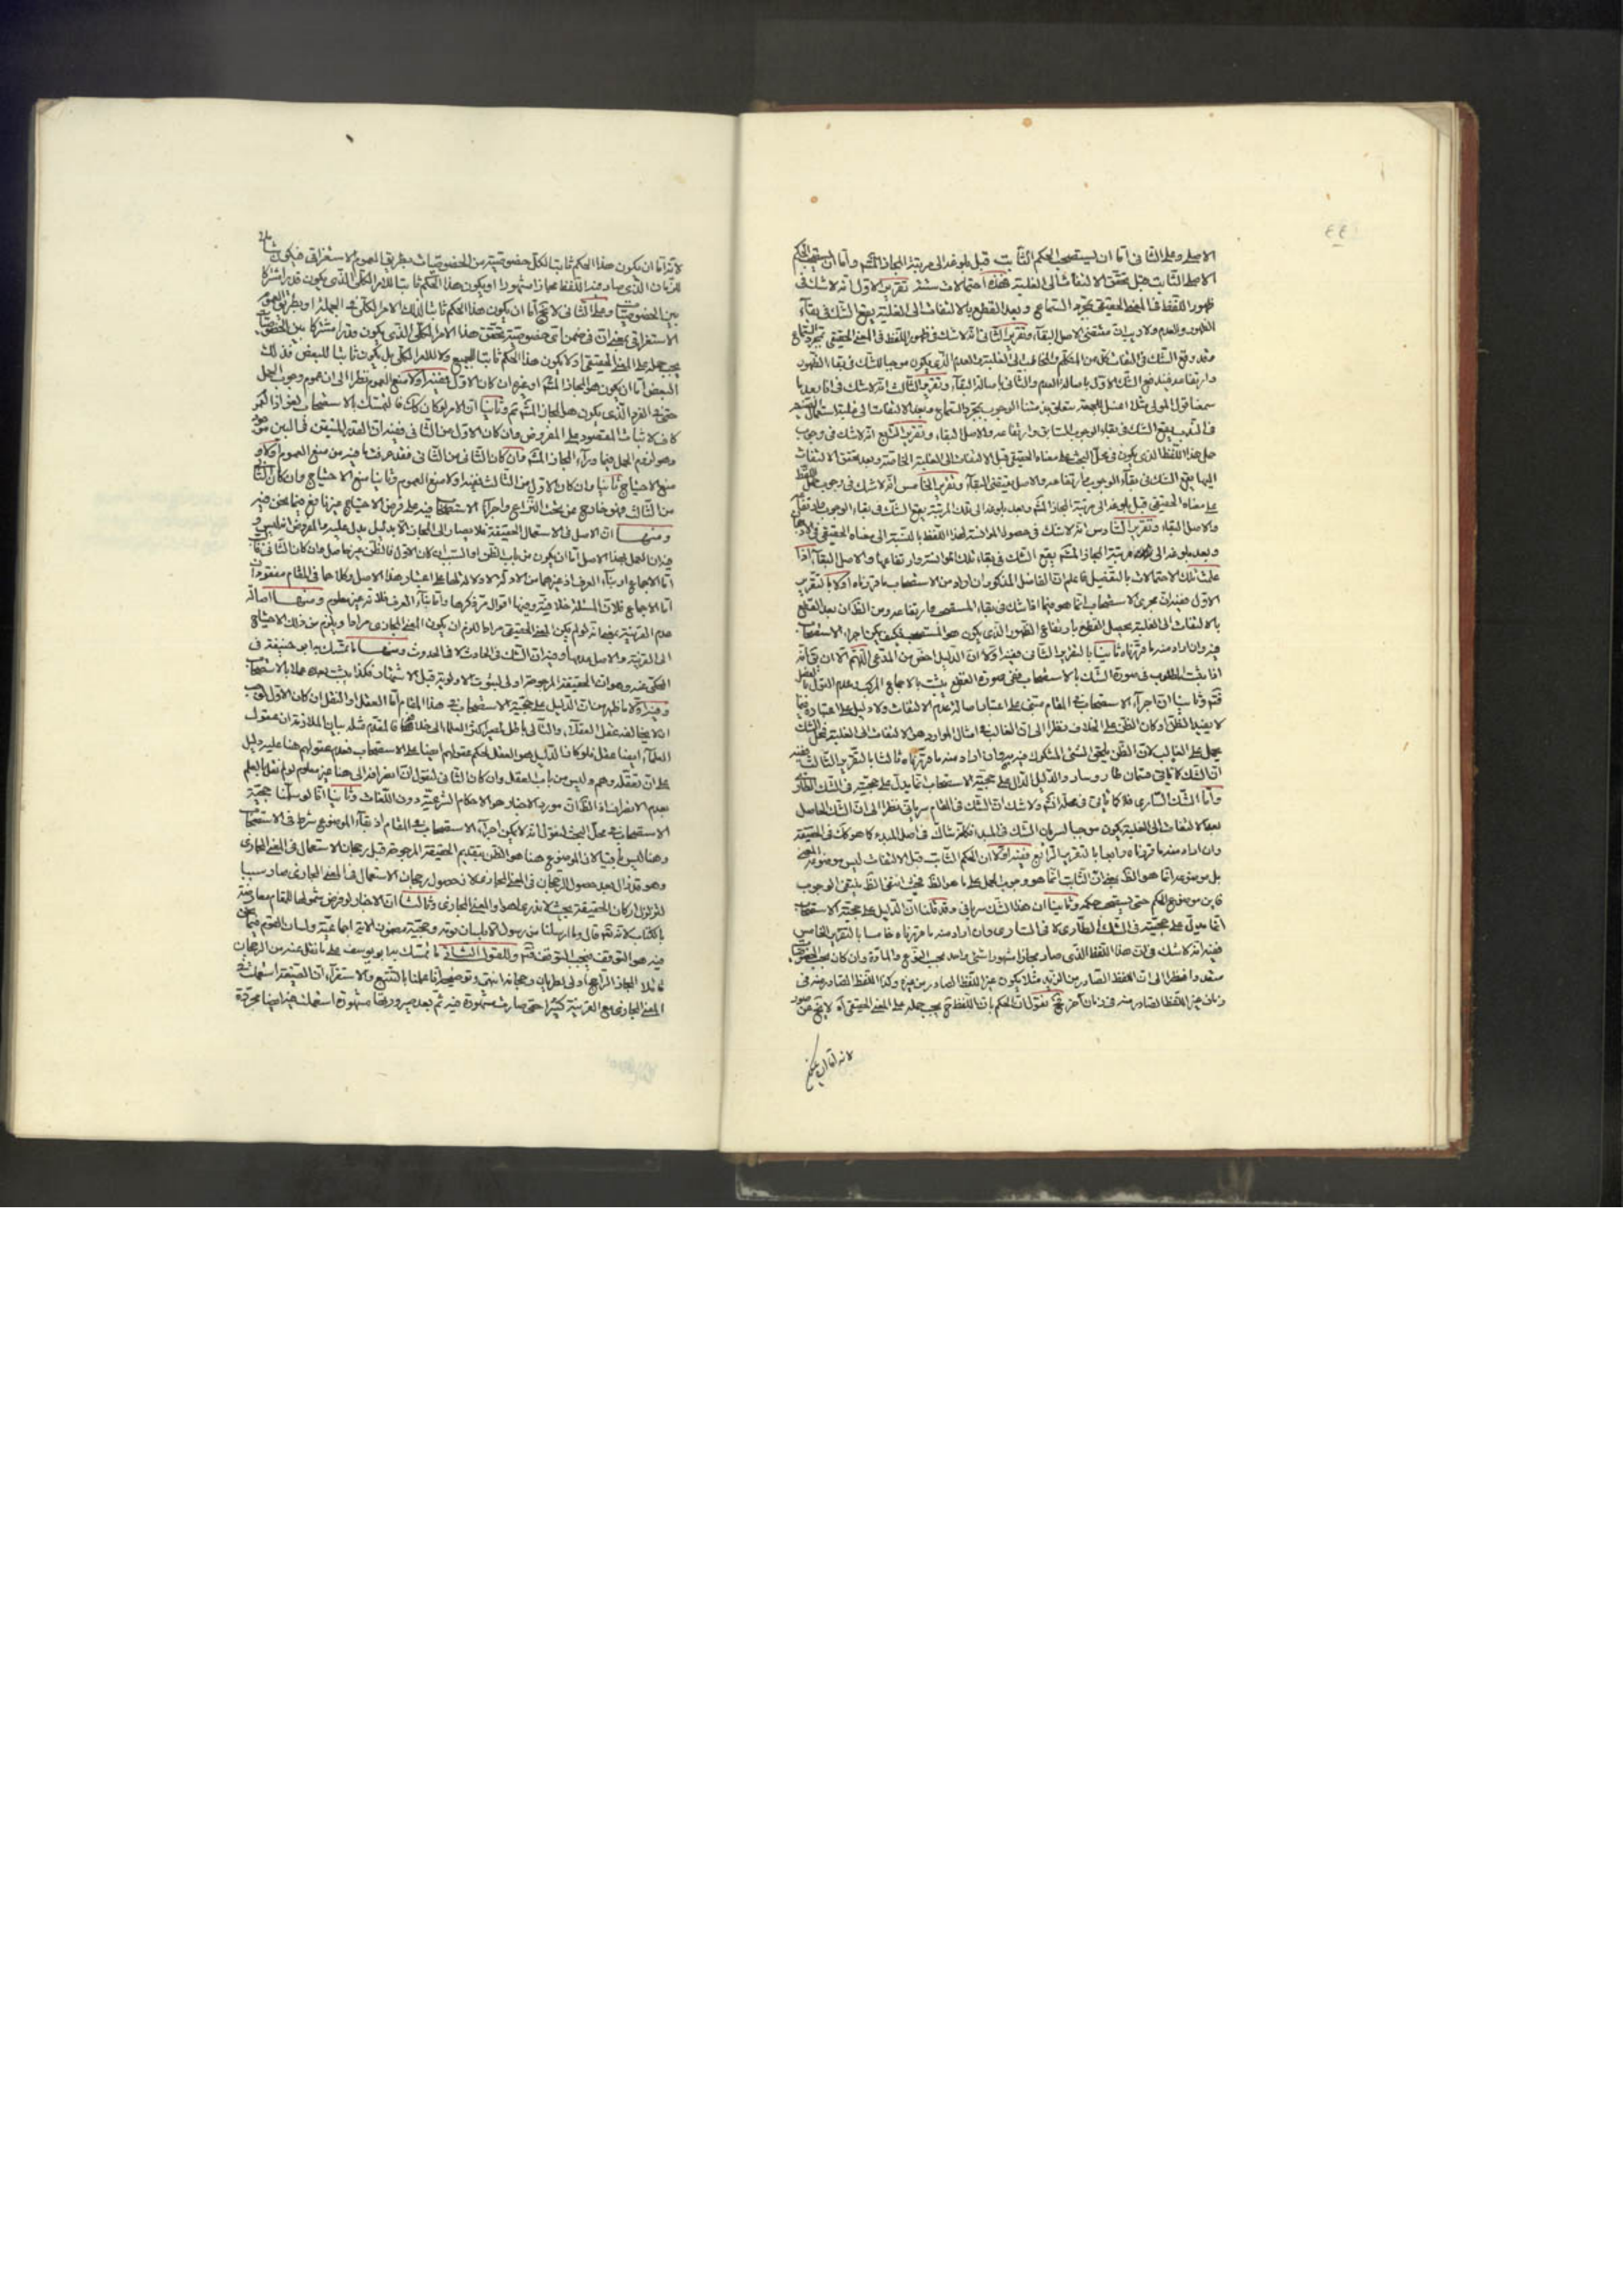 ٤٤
الاصلى وعلى الثانى امّا ان يستصحب الحكم الثّابت قبل بلوغه الى مرتبة المجاز المشهـ وامّا ان يستصحب الحكم
الاصلى الثابت قبل تحقّق الالتفات الى الغلبة فهذه احتمالات ستّة تقرير الاوّل انّه لاشك فى
ظهور اللفظ فى المعنى الحقيقى بمجرّد السّماع وبعد القطع بالالتفات الى الغلبة يقع الشّك فى بقآء
الظهور والعدم ولا ريب انّ مقتضى الاصل البقآء وتقرير الثّانى انّه لاشك فى ظهور اللّفظ فى المعنى الحقيقى بمجرّد السّماع
فقد وقع الشّك فى التفات كلّ من المتكلّم والمخاطب الى الغلبة والعدم الّذى يكون موجبا للشك فى بقاء الظهور
وارتفاعه فيندفع الشّك الاوّل باصالة العدم والثّانى باصالة البقآء وتقرير الثّالث انّه لاشك فى انّا بعد ما
سمعنا قول المولى مثلا اغتسل للجمعة يتعلق بذمّتنا الوجوب بمجرّد السّماع وبعد الالتفات الى غلبة استعمال
فى النّدب يقع الشّك فى بقاء الوجوب السّابق وارتفاعه والاصل البقاء وتقرير الرّابع انّه لاشك فى وجوب
حمل هذا اللّفظ الذى يكون فى محلّ البحث على معناه الحقيقى قبل الالتفات الى الغلبة الخاصّة وبعد تحقق الالتفات
اليها يقع الشّك فى بقآء الوجوب وارتفاعه والاصل يقتضى البقآء وتقرير الخامس انّه لاشك فى وجوب حمل اللّفظ
على معناه الحقيقى قبل بلوغه الى مرتبة المجاز المشهـ وبعد بلوغه الى تلك المرتبة يقع الشّك فى بقاء الوجوب
والاصل البقاء وتقرير السّادس انّه لاشك فى حصول المؤانسة لهذا اللّفظ بالنّسبة الى معناه الحقيقى
وبعد بلوغه الى مرتبة المجاز المشهـ يقع الشّك فى بقاء تلك المؤانسة وارتفاعها والاصل البقآء اذا
علمت تلك الاحتمالات بالتّفصيل فاعلم انّ الفاضل المذكور ان اراد من الاستصحاب ما قرّرناه اوّلا بالتّقرير
الاوّل ففيه انّ مجرى الاستصحاب انّما هو فيما اذا شك فى بقاء المستصحب وارتفاعه ومن الظّ ان بعد القطع
بالالتفات الى الغلبة يحصل القطع بارتفاع الظّهور الّذى يكون هو المستصحب فكيف يمكن اجراء الاستصحاب
فيه وان اراد منه ما قرّرناه ثانيا بالتّقرير الثّانى ففيه اوّلا انّ الدّليل اخصّ من المدّعى اللّهمّ الّا ان يقال انّه
اذا يثبت المطلوب فى صورة الشّك بالاستصحاب ففى صورة القطع يثبت بالاجماع المركب وعدم القول بالفصل
فتمّ وثانيا انّ اجرآء الاستصحاب فى المقام مبتنى على اعتبار اصالة عدم الالتفات ولا دليل على اعتباره فيما
لا يفيد الظّن او كان الظّن على الخلاف ونظرا الى انّ الغالب فى امثال الموارد هو الالتفات الى الغلبة فمحلّ الشّك
يحمل على الغالب لانّ الظّن يلحق الشّئ المشكوك فيه وان اراد منه ما قرّرناه ثالثا بالتّقرير الثّالث ففيه
انّ الشّك كما تقرّر قسمان طار وسار والدّليل الدّال على حجّية الاستصحاب انّما يدلّ على حجيّته فى الشّك الطّارى
وامّا الشّك السّارى فلا كما ثبت فى محلّه انشهـ ولا شك انّ الشّك فى المقام سريانى نظرا الى انّ الشّك الحاصل
بعد الالتفات الى الغلبة يكون موجبا لسريان الشّك فى المبدء كما هو كك فى الحقيقة
وان اراد منه ما قرّرناه رابعا بالتّقرير الرّابع ففيه اوّلا ان الحكم الثّابت قبل الالتفات ليس موضوعه المعنى
بل موضوعه انّما هو الظّ بمعنى انّ الثّابت انّما هو وجوب الحمل على ما هو الظّ فحيث انتفى الظّ ينتفى الوجوب
فاين موضوع الحكم حتّى يستصحب حكمه وثانيا ان هذا الشّك سريانى وقد قلنا انّ الدّليل على حجيّة الاستصحاب
انّما يدلّ على حجيّته فى الشّك الطّارى لا فى السّارى وان اراد منه ما قرّرناه خامسا بالتّقرير الخامس
ففيه انّه لاشك فى انّ هذا اللّفظ الّذى صار مجازا مشهورا شئ واحد بحسب النّوع والمادّة وان كان بحسب الخصوصيّات
متعدّدا نظرا الى انّ اللّفظ الصّادر من الزيد مثلا يكون غير اللّفظ الصّادر من غيره وكذا اللّفظ الصّادر منه فى
زمان غير اللّفظ الصّادر منه فى زمان آخر فح نقول انّ الحكم بانّ اللّفظ ح يجب حمله على المعنى الحقيقى اه لا يخ من
لانه امّا ان يكون
لانّه امّا ان يكون هذا الحكم ثابتا لكلّ خصوصيّة من الخصوصيّات بطريق العموم الاستغراقى فيكون
للزّمان الّذى صار فيه اللّفظ مجازا مشهورا او يكون هذا الحكم ثابتا للامر الكلّى الّذى يكون قدرا مشتركا
بين الخصوصيّات وعلى الثّانى لا يخ امّا ان يكون هذا الحكم ثابتا لذلك الامر الكلّى فى الجملة او بطريق العموم
الاستغراقى بمعنى انّ فى ضمن اىّ خصوصيّة تحقّق هذا الامر الكلّى الّذى يكون قدرا مشتركا بين الخصوصيّات
يجب حمله على المعنى الحقيقى او لا يكون هذا الحكم ثابتا للجميع ولا للامر الكلّى بل يكون ثابتا للبعض فذلك
البعض امّا ان يكون هو المجاز المشهـ او غيره ان كان الاوّل ففيه اوّلا منع العموم نظرا الى ان عموم وجوب الحمل
حتّى فى الفرد الّذى يكون هو المجاز المشهـ ثم وثانيا انّ الامر لو كان كك فالتمسّك بالاستصحاب لغو اذ العموم
كاف لاثبات المقصود على المفروض وان كان الاوّل من الثّانى ففيه انّ القدر المتيقّن فى البين موجود
وهو لزوم الحمل فيما ورآء المجاز المشهـ وان كان الثّانى من الثّانى فقد عرفت ما فيه من منع العموم اوّلا و
منع الاحتياج ثانيا وان كان الاوّل من الثّالث ففيه اوّلا منع العموم وثانيا منع الاحتياج وان كان الثّانى
من الثّالث فهو خارج عن تحت النّزاع واجرآء الاستصحاب فيه على فرض الاحتياج غير نافع فيما نحن فيه
ومنهـــا انّ الاصل فى الاستعمال الحقيقة فلا يصار الى المجاز الّا بدليل يدلّ عليه والمفروض انّه ليس و
فيه ان العمل بهذا الاصل امّا ان يكون من باب الظّن او السّبب ان كان الاوّل فالظّن غير حاصل وان كان الثّانى
امّا الاجماع او بنآء العرف اذ غيرهما من الادلّة لا دلالة لها على اعتبار هذا الاصل وكلاهما فى المقام مفقودان
امّا الاجماع فلانّ المسئلة خلافيّة وفيها اقوال مرّ ذكرها وامّا بنآء العرف فلانّه غير معلوم ومنهـــا اصالة
عدم القرينة بمعنى انّه لو لم يكن المعنى الحقيقى مرادا للزم ان يكون المعنى المجازى مرادا ويلزم من ذلك الاحتياج
الى القرينة والاصل عدمها وفيه انّ الشّك فى الحادث لا فى الحدوث ومنهـــا ما تمسّك به ابو حنيفة فى
المحكى عنه وهو انّ الحقيقة المرجوحة اولى لثبوت الاولوية قبل الاشتهار فكذا يثبت بعده عملا بالاستصحاب
وفيه اوّلا ما ظهر من انّ الدّليل على حجيّة الاستصحاب فى هذا المقام امّا العقل او النّقل ان كان الاوّل
ان لا يخالفه عقل العقلآء والتّالى باطل لمصير اكثر العلمآء الى خلافه فالمقدّم مثله بيان الملازمة ان عقول
العلمآء ايضا عقل فلو كان الدّليل هو العقل لحكم عقولهم ايضا على الاستصحاب فعدم عقولهم هنا عليه دليل
على ان تعقّله وهم وليس من باب العقل وان كان الثّانى فنقول انّ انصرافه الى هنا غير معلوم لو لم نقل بالعلم
بعدم الانصراف اذ الظّ انّ مورد الاخبار هو الاحكام الشّرعيّة دون اللّغات وثانيا انّا لو سلّمنا حجيّة
الاستصحاب فى محلّ البحث لنقول انّه لا يمكن اجرآء الاستصحاب فى المقام اذ بقآء الموضوع شرط فى الاستصحاب
وهنا ليس باقيا لانّ الموضوع هنا هو الظّن بتقديم الحقيقة المرجوحة قبل رجحان الاستعمال فى المعنى المجازى
وهو قد زال بعد حصول الرّجحان فى المعنى المجازى لانّ حصول رجحان الاستعمال فى المعنى المجازى صار سببا
لتزلزل اركان الحقيقة بحيث لا ندرى اهو او المعنى المجازى وثالثـا انّ الاخبار لو فرض شمولها للمقام معارضة
بالكتاب لانّه تع قال وما ارسلنا من رسول الّا بلسان قومه وحجيّة مضمون الآية اجماعيّة ولسان القوم فيما نحن
فيه هو التوقف فيجب التوقف فتمّ وللقول الثّانى ما تمسّك به ابو يوسف على ما نقل عنه من الرجحان
قائلا المجاز الرّاجح اولى لطريان رجحانه انتهى وتوضيحه انّا علمنا بالتّتبع والاستقرآء انّ الصّيغة استعملت فى
المعنى المجازى مع القرينة كثيرا حتّى صارت مشهورة فيه ثمّ بعد صيرورتها مشهورة استعملت فيه ايضا مجرّدة